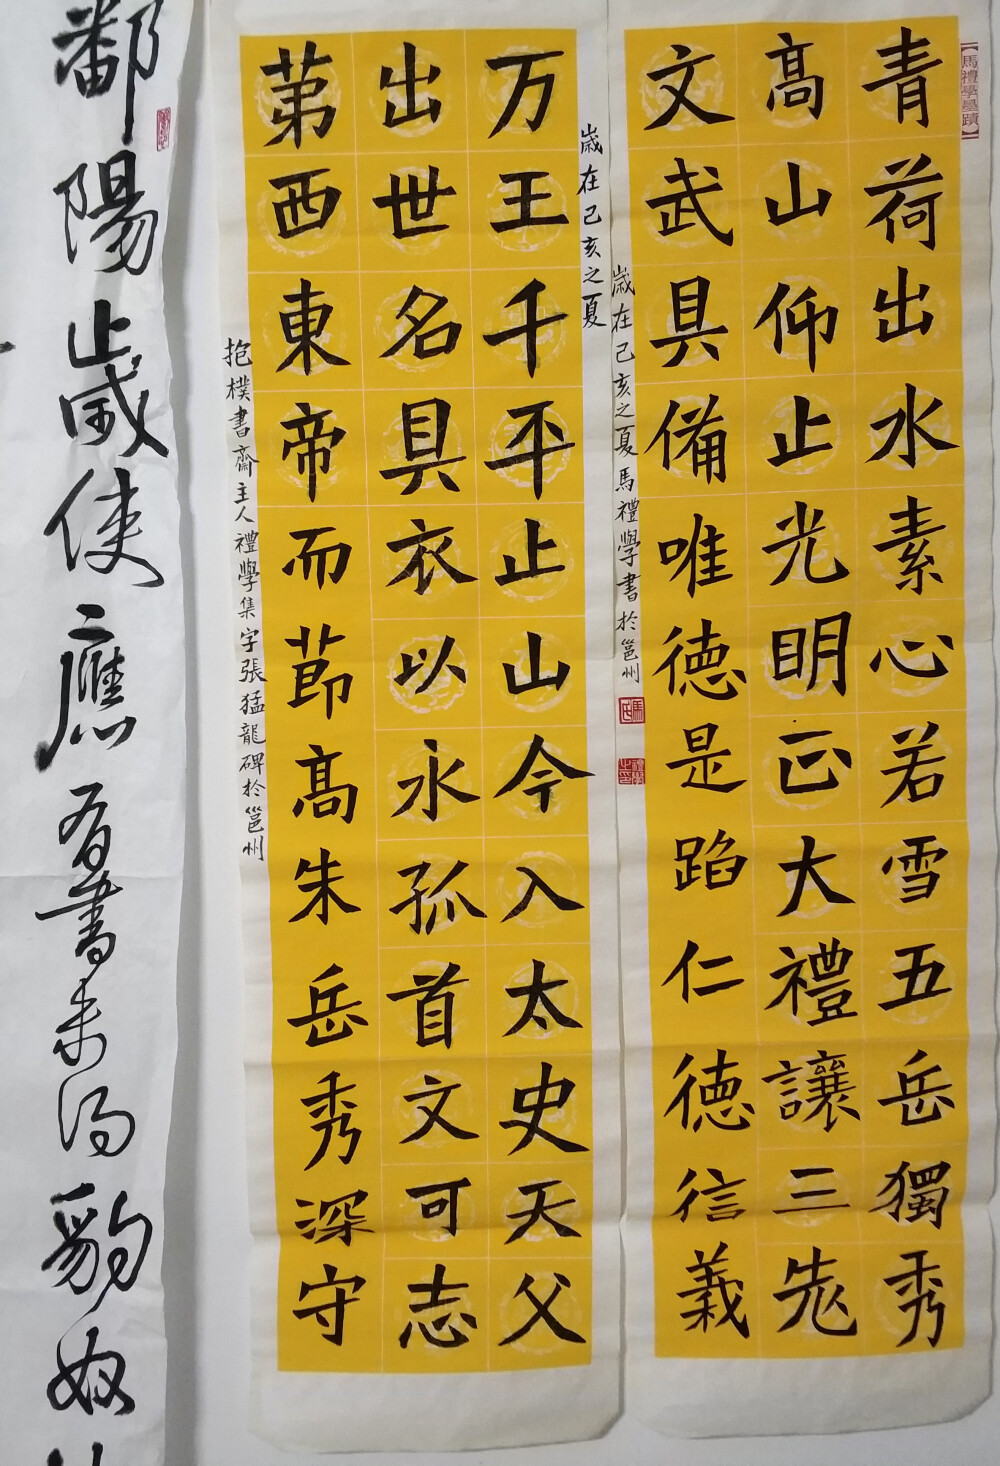 【馬禮學墨蹟】
青荷出水素心若雪五岳獨秀
高山仰止光明正大禮讓三先
文武具備唯德是蹈仁德信義
歲在己亥之夏馬禮學書於邕州
歲在己亥之夏
万王千平止山今入太史天父
出世名具衣以永孤首文可志
苐西東帝而節高朱岳秀深守
抱樸書齋主人禮學集字張猛龍碑於邕州
鄱陽歸使應有書未得豹奴